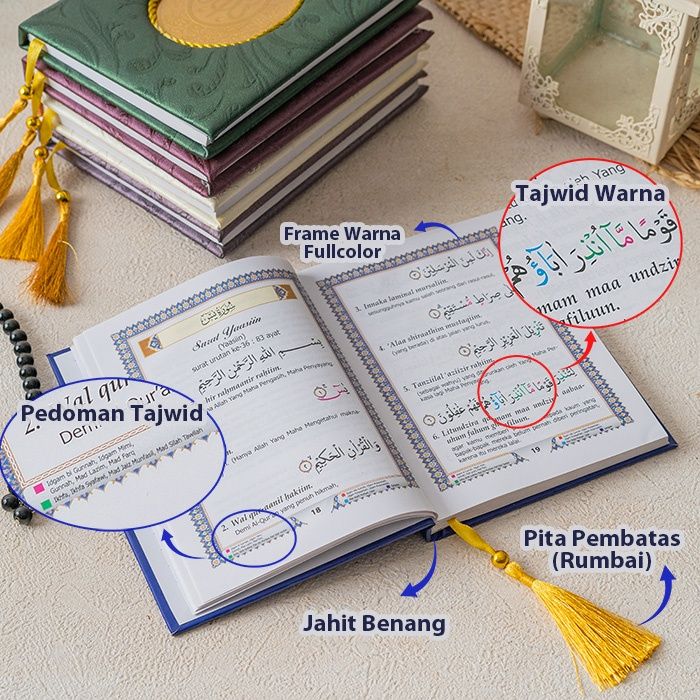 Tajwid Warna
قَوْمًا مَّآ اُنْذِرَ اٰبَاۤؤُ
mam maa undzir
filuun.
Frame Warna
Fullcolor
Pedoman Tajwid
2. Wal qur
Demi
Qur'a
Idgam bi Gunnah, Idgam Mimi,
Gunnah, Mad Lazim, Mad Farq
Ikhfa, Ikhfa Syafawi, Mad Jaiz Munfasil, Mad Silah Tawilah
سُوْرَةُ يٰسۤ
Surat Yaasiin
(Yaasiin)
surat urutan ke:36 - 83 ayat
بِسْمِ اللّٰهِ الرَّحْمٰنِ الرَّحِيْمِ
rahmaanir rahiim.
Allah Yang Maha Pengasih, Maha Penyayang
يٰسۤ
(Hanya Allah Yang Maha Mengetahui makna-
وَالْقُرْاٰنِ الْحَكِيْمِ
2. Wal qur'aanil hakiim.
Demi Al-Qur'an yang penuh hikmah,
18
اِنَّكَ لَمِنَ الْمُرْسَلِيْنَ
3. Innaka laminal mursaliin.
sesungguhnya kamu salah seorang dari rasul-rasul,
عَلٰى صِرَاطٍ مُّسْتَقِيْمٍ
4. 'Alaa shiraathim mustaqiim.
(yang berada) di atas jalan yang lurus,
تَنْزِيْلَ الْعَزِيْزِ الرَّحِيْمِ
5. Tanziilal 'aziizir rahiim.
(sebagai wahyu) yang diturunkan oleh Yang Maha Per-
kasa lagi Maha Penyayang,
لِتُنْذِرَ قَوْمًا مَّآ اُنْذِرَ اٰبَاۤؤُهُمْ فَهُمْ غٰفِلُوْنَ
6. Litundzira qaumam maa undzira aabaa-
uhum fahum ghaafiluun.
agar kamu memberi peringatan kepada kaum yang
bapak-bapak mereka belum pernah diberi peringatan,
karena itu mereka lalai.
19
Jahit Benang
Pita Pembatas
(Rumbai)